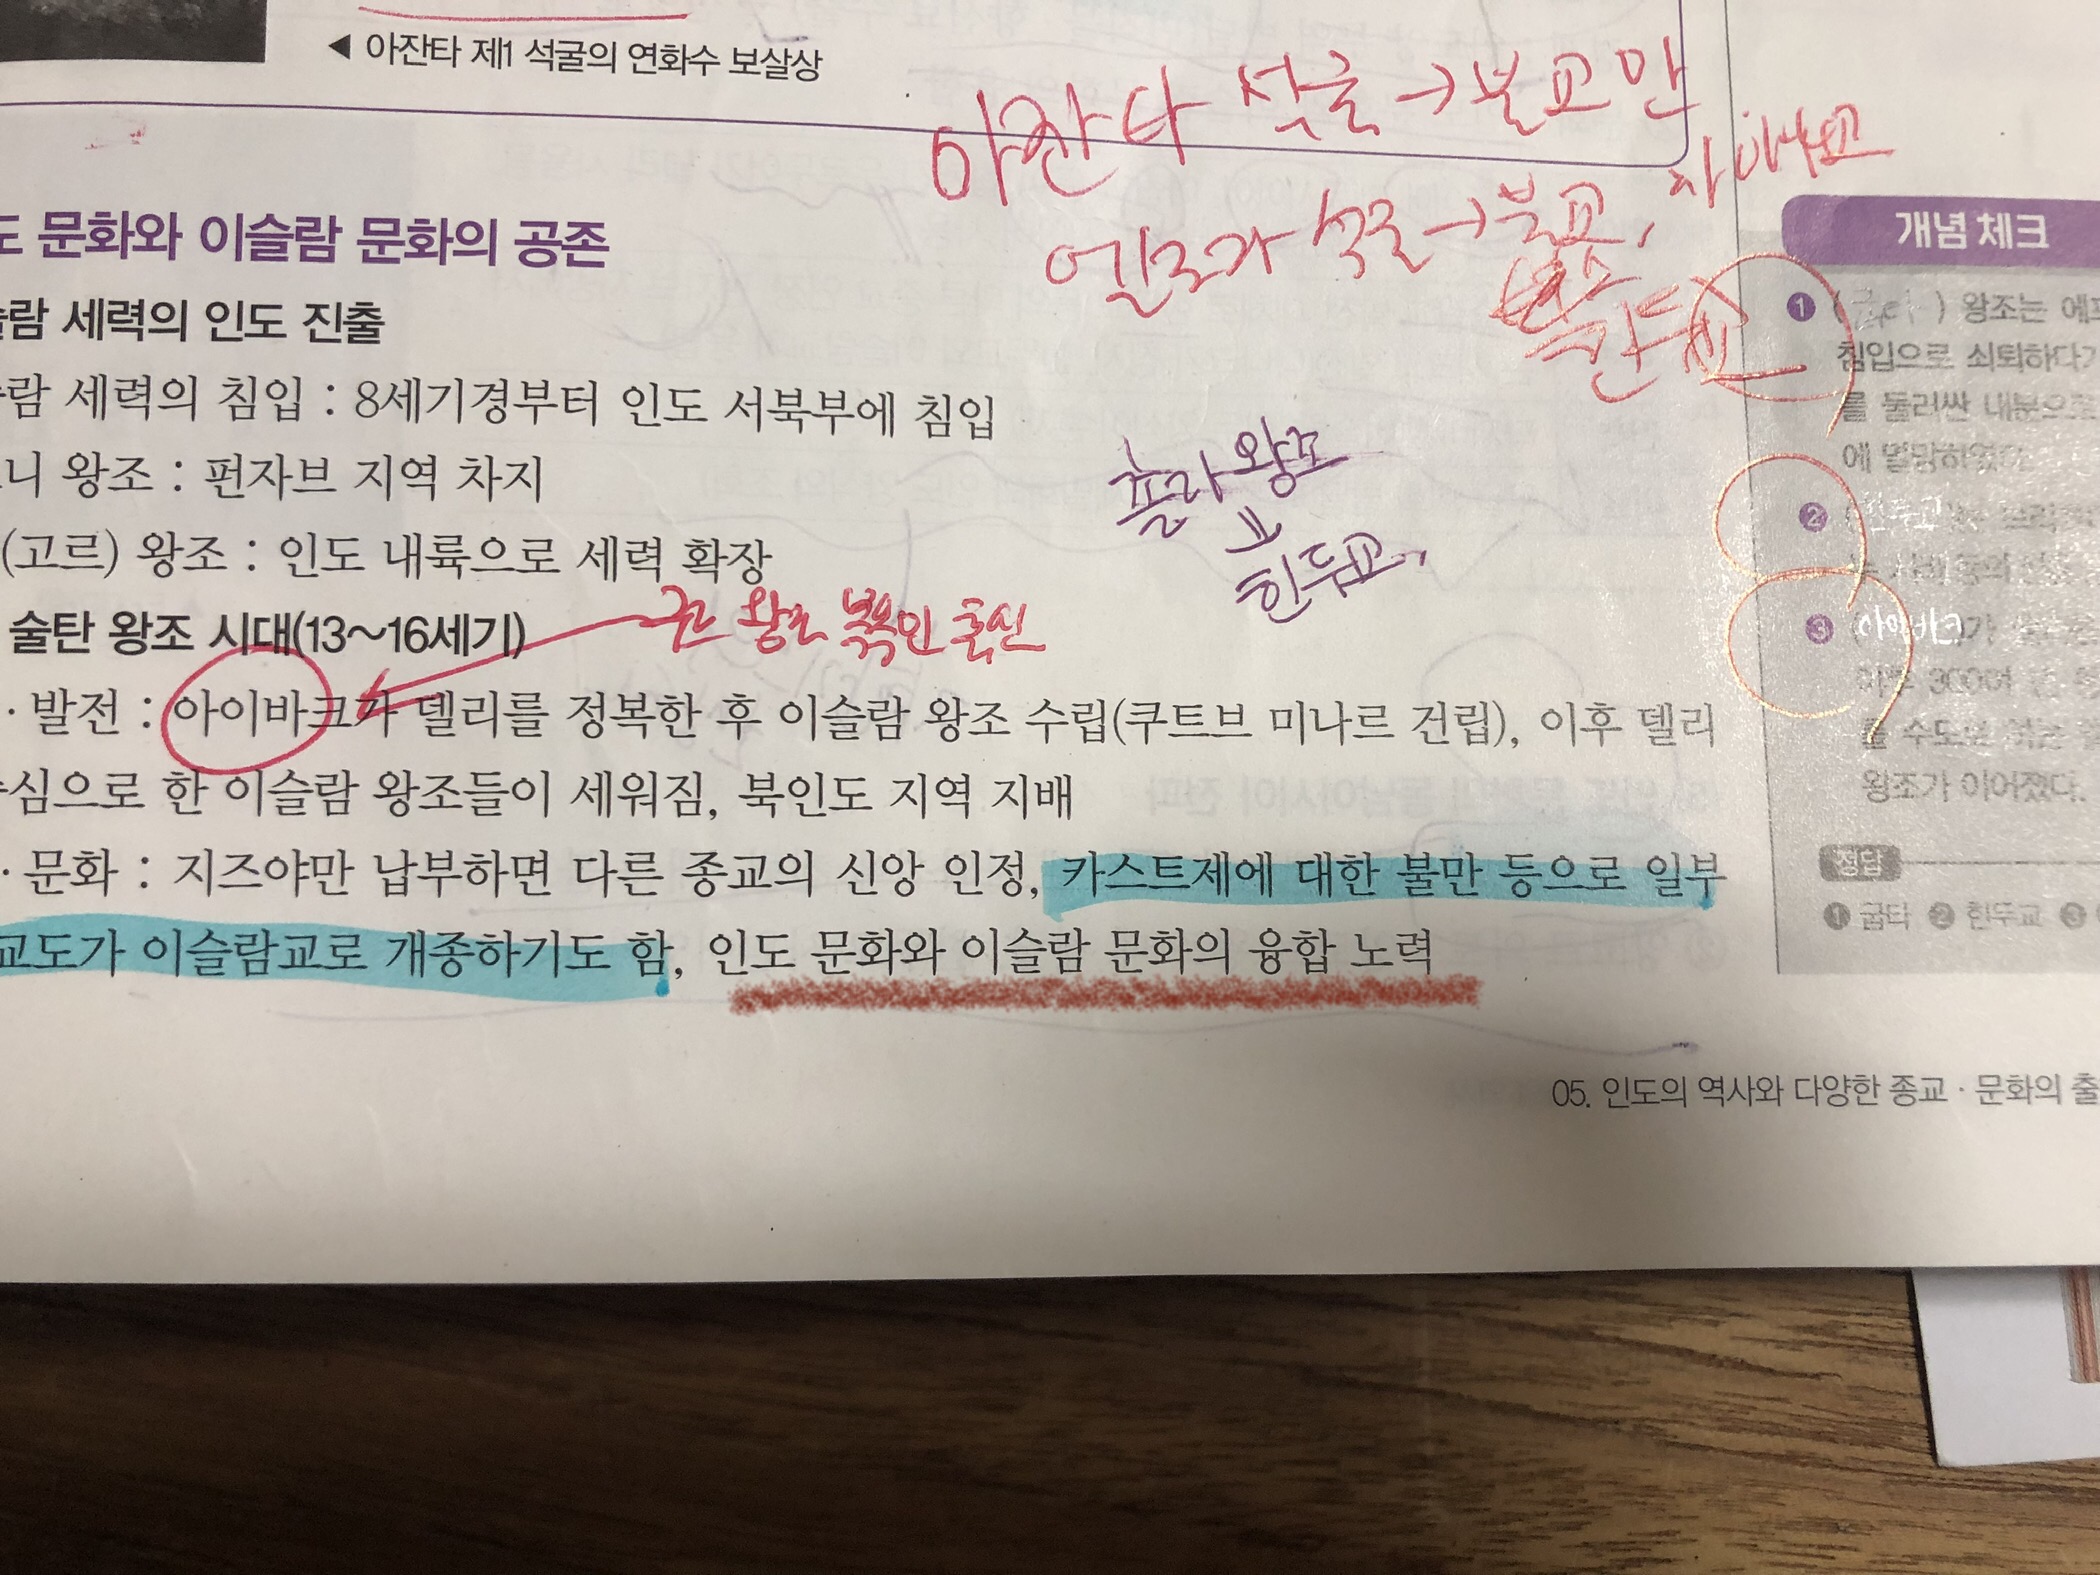 ◀ 아잔타 제1 석굴의 연화수 보살상
아잔타 석굴 → 불교만
엘로라 석굴 → 불교, 자이나교
힌두교
도 문화와 이슬람 문화의 공존
슬람 세력의 인도 진출
슬람 세력의 침입 : 8세기경부터 인도 서북부에 침입
니 왕조 : 펀자브 지역 차지
(고르) 왕조 : 인도 내륙으로 세력 확장
촐라 왕조
힌두교,
술탄 왕조 시대(13~16세기)
구르 왕조 출신
· 발전 : 아이바크가 델리를 정복한 후 이슬람 왕조 수립(쿠트브 미나르 건립), 이후 델리
심으로 한 이슬람 왕조들이 세워짐, 북인도 지역 지배
· 문화 : 지즈야만 납부하면 다른 종교의 신앙 인정, 카스트제에 대한 불만 등으로 일부
교도가 이슬람교로 개종하기도 함, 인도 문화와 이슬람 문화의 융합 노력
개념 체크
1 (굽타) 왕조는 에프
침입으로 쇠퇴하다가
를 둘러싼 내분으로
에 멸망하였다.
2 (힌두교)
3 (아이바크)가
이후 300여
를 수도로 하는
왕조가 이어졌다.
정답
1 굽타 2 힌두교 3
05. 인도의 역사와 다양한 종교 · 문화의 출